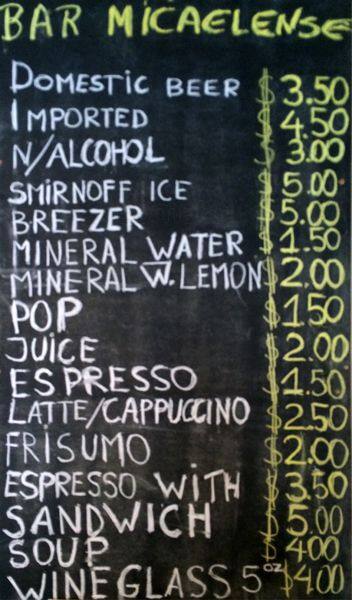 BAR MICAELENSE
DOMESTIC BEER $ 3.50
IMPORTED $ 4.50
N/ALCOHOL $ 3.00
SMIRNOFF ICE $ 5.00
BREEZER $ 5.00
MINERAL WATER $ 1.50
MINERAL W. LEMON $ 2.00
POP $ 1.50
JUICE $ 2.00
ESPRESSO $ 1.50
LATTE/CAPPUCCINO $ 2.50
FRISUMO $ 2.00
ESPRESSO WITH $ 3.50
SANDWICH $ 5.00
SOUP $ 4.00
WINE GLASS 5 OZ $4.00